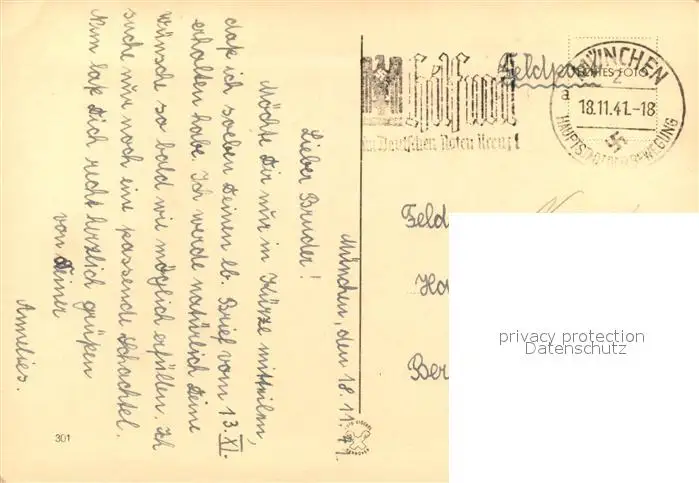 München, den 18.11.41.
Lieber Bruder!
Möchte Dir nur in Kürze mitteilen,
daß ich soeben Deinen lb. Brief vom 13. XI.
erhalten habe. Ich werde natürlich Deine
Wünsche so bald wie möglich erfüllen. Ich
suche nur noch eine passende Schachtel.
Nun laß Dich recht herzlich grüßen
von Deiner
Annelies.
301
hilf mit
im Deutschen Roten Kreuz!
Feldpost
MÜNCHEN
2
ECHTES FOTO
a
18.11.41.-18
HAUPTSTADT DER BEWEGUNG
Feld
Ber
privacy protection
Datenschutz